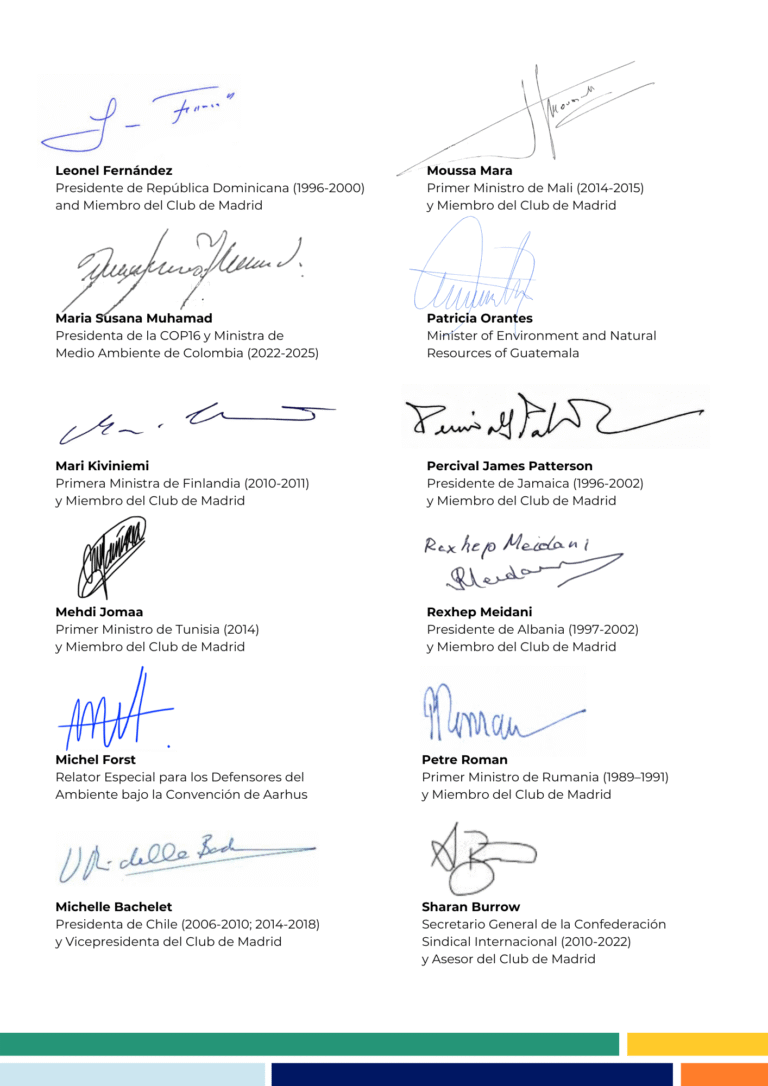 Leonel Fernández
Presidente de República Dominicana (1996-2000)
and Miembro del Club de Madrid
Maria Susana Muhamad
Presidenta de la COP16 y Ministra de
Medio Ambiente de Colombia (2022-2025)
Mari Kiviniemi
Primera Ministra de Finlandia (2010-2011)
y Miembro del Club de Madrid
Mehdi Jomaa
Primer Ministro de Tunisia (2014)
y Miembro del Club de Madrid
Michel Forst
Relator Especial para los Defensores del
Ambiente bajo la Convención de Aarhus
Michelle Bachelet
Presidenta de Chile (2006-2010; 2014-2018)
y Vicepresidenta del Club de Madrid
Moussa Mara
Primer Ministro de Mali (2014-2015)
y Miembro del Club de Madrid
Patricia Orantes
Minister of Environment and Natural
Resources of Guatemala
Percival James Patterson
Presidente de Jamaica (1996-2002)
y Miembro del Club de Madrid
Rexhep Meidani
Rexhep Meidani
Presidente de Albania (1997-2002)
y Miembro del Club de Madrid
Petre Roman
Primer Ministro de Rumania (1989–1991)
y Miembro del Club de Madrid
Sharan Burrow
Secretario General de la Confederación
Sindical Internacional (2010-2022)
y Asesor del Club de Madrid